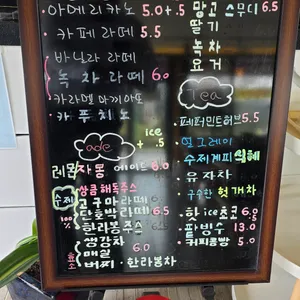 아메리카노 5.0 + .5
카페라떼 5.5
바닐라 라떼
녹차라떼 6.0
카라멜 마키아또
카푸치노
ade
ice + .5
레몬 자몽 에이드 6.0
수제 100%
상큼해독주스
고구마라떼
단호박라떼 6.5
한라봉주스
생강차
매실 6.0
버찌 · 한라봉차
망고 스무디 6.5
딸기
녹차
요거
Tea
페퍼민트허브 5.5
얼그레이
수제계피 식혜
유자차
구수한 헛개차
핫 ice 초코 6.0
팥빙수 13.0
커피콩빵 5.0